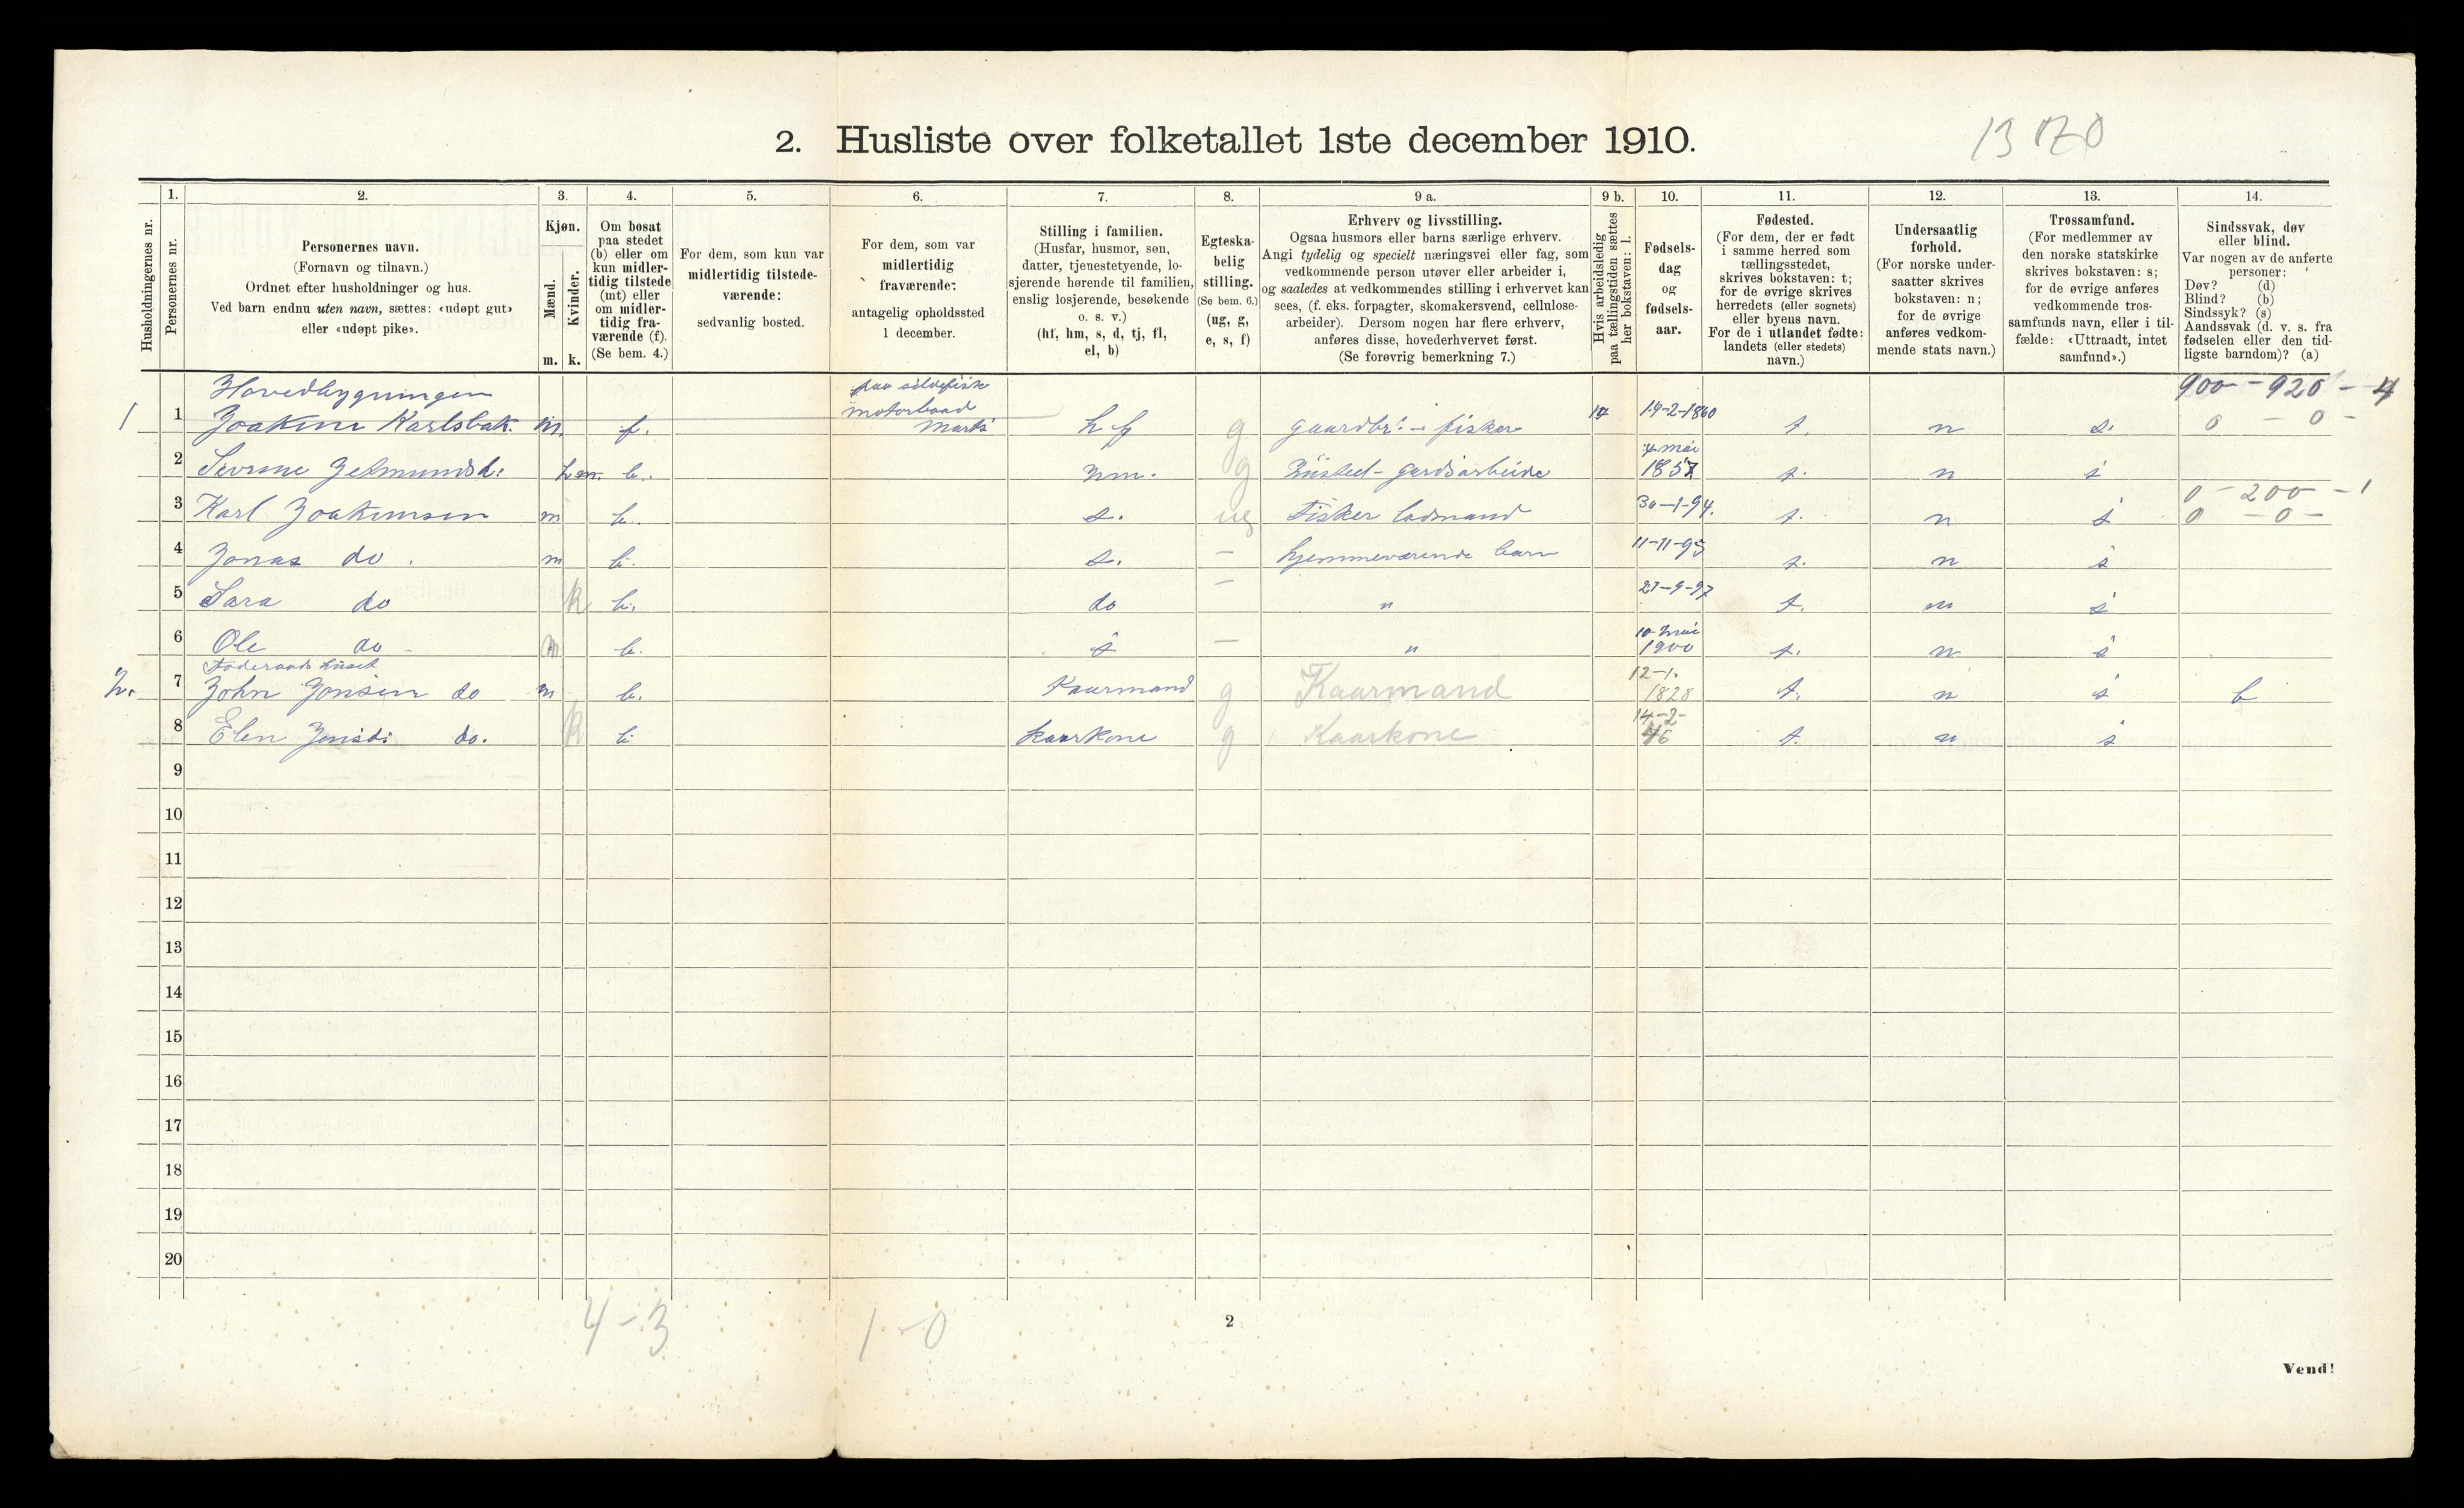 2. Husliste over folketallet 1ste december 1910.
Husholdningernes nr.
1.
Personernes nr.
2.
Personernes navn.
(Fornavn og tilnavn.)
Ordnet efter husholdninger og hus.
Ved barn endnu uten navn, sættes: «udøpt gut»
eller «udøpt pike».
3.
Kjøn.
Mænd.
m.
Kvinder.
k.
4.
Om bosat
paa stedet
(b) eller om
kun midler-
tidig tilstede
(mt) eller
om midler-
tidig fra-
værende (f).
(Se bem. 4.)
5.
For dem, som kun var
midlertidig tilstede-
værende:
sedvanlig bosted.
6.
For dem, som var
midlertidig
fraværende:
antagelig opholdssted
1 december.
7.
Stilling i familien.
(Husfar, husmor, søn,
datter, tjenestetyende, lo-
sjerende hørende til familien,
enslig losjerende, besøkende
o. s. v.)
(hf, hm, s, d, tj, fl,
el, b)
8.
Egteska-
belig
stilling.
(Se bem. 6.)
(ug, g,
e, s, f)
9 a.
Erhverv og livsstilling.
Ogsaa husmors eller barns særlige erhverv.
Angi tydelig og specielt næringsvei eller fag, som
vedkommende person utøver eller arbeider i,
og saaledes at vedkommendes stilling i erhvervet kan
sees, (f. eks. forpagter, skomakersvend, cellulose-
arbeider). Dersom nogen har flere erhverv,
anføres disse, hovederhvervet først.
(Se forøvrig bemerkning 7.)
9 b.
Hvis arbeidsledig
paa tællingstiden sættes
her bokstaven: l.
10.
Fødsels-
dag
og
fødsels-
aar.
11.
Fødested.
(For dem, der er født
i samme herred som
tællingsstedet,
skrives bokstaven: t;
for de øvrige skrives
herredets (eller sognets)
eller byens navn.
For de i utlandet fødte:
landets (eller stedets)
navn.)
12.
Undersaatlig
forhold.
(For norske under-
saatter skrives
bokstaven: n;
for de øvrige
anføres vedkom-
mende stats navn.)
13.
Trossamfund.
(For medlemmer av
den norske statskirke
skrives bokstaven: s;
for de øvrige anføres
vedkommende tros-
samfunds navn, eller i til-
fælde: «Uttraadt, intet
samfund».)
14.
Sindssvak, døv
eller blind.
Var nogen av de anførte
personer:
Døv? (d)
Blind? (b)
Sindssyk? (s)
Aandssvak (d. v. s. fra
fødselen eller den tid-
ligste barndom)? (a)
Hovedbygningen
paa sildefiske 900 - 920 - 4
1 1 Joakim Karlsbak. m. f. motorbaad h f g gaardbr. - fisker 14-2-1860 t. n s. 0 - 0 -
2 Sevrine b. g gardsarbeide 4 mai 1857 t. n s
3 Karl Joakimsen m b. s. ug Fisker 30-1-94. t. n s 0 - 200 - 1
0 - 0 -
4 Jonas do. m b. s. - hjemmeværende barn 11-11-95 t. n s
5 Sara do k b. do - " 27-9-97 t. n s
6 Ole do m b. s - " 10 mai 1900 t. n s
Föderaads huset
2. 7 John Jonsen do m b. Kaarmand g Kaarmand 12-1. 1828 t. n s b
8 Elen Jonsd: do. k b kaarkone g Kaarkone 14-2- t. n s
9
10
11
12
13
14
15
16
17
18
19
20
4-3 1-0
2
Vend!